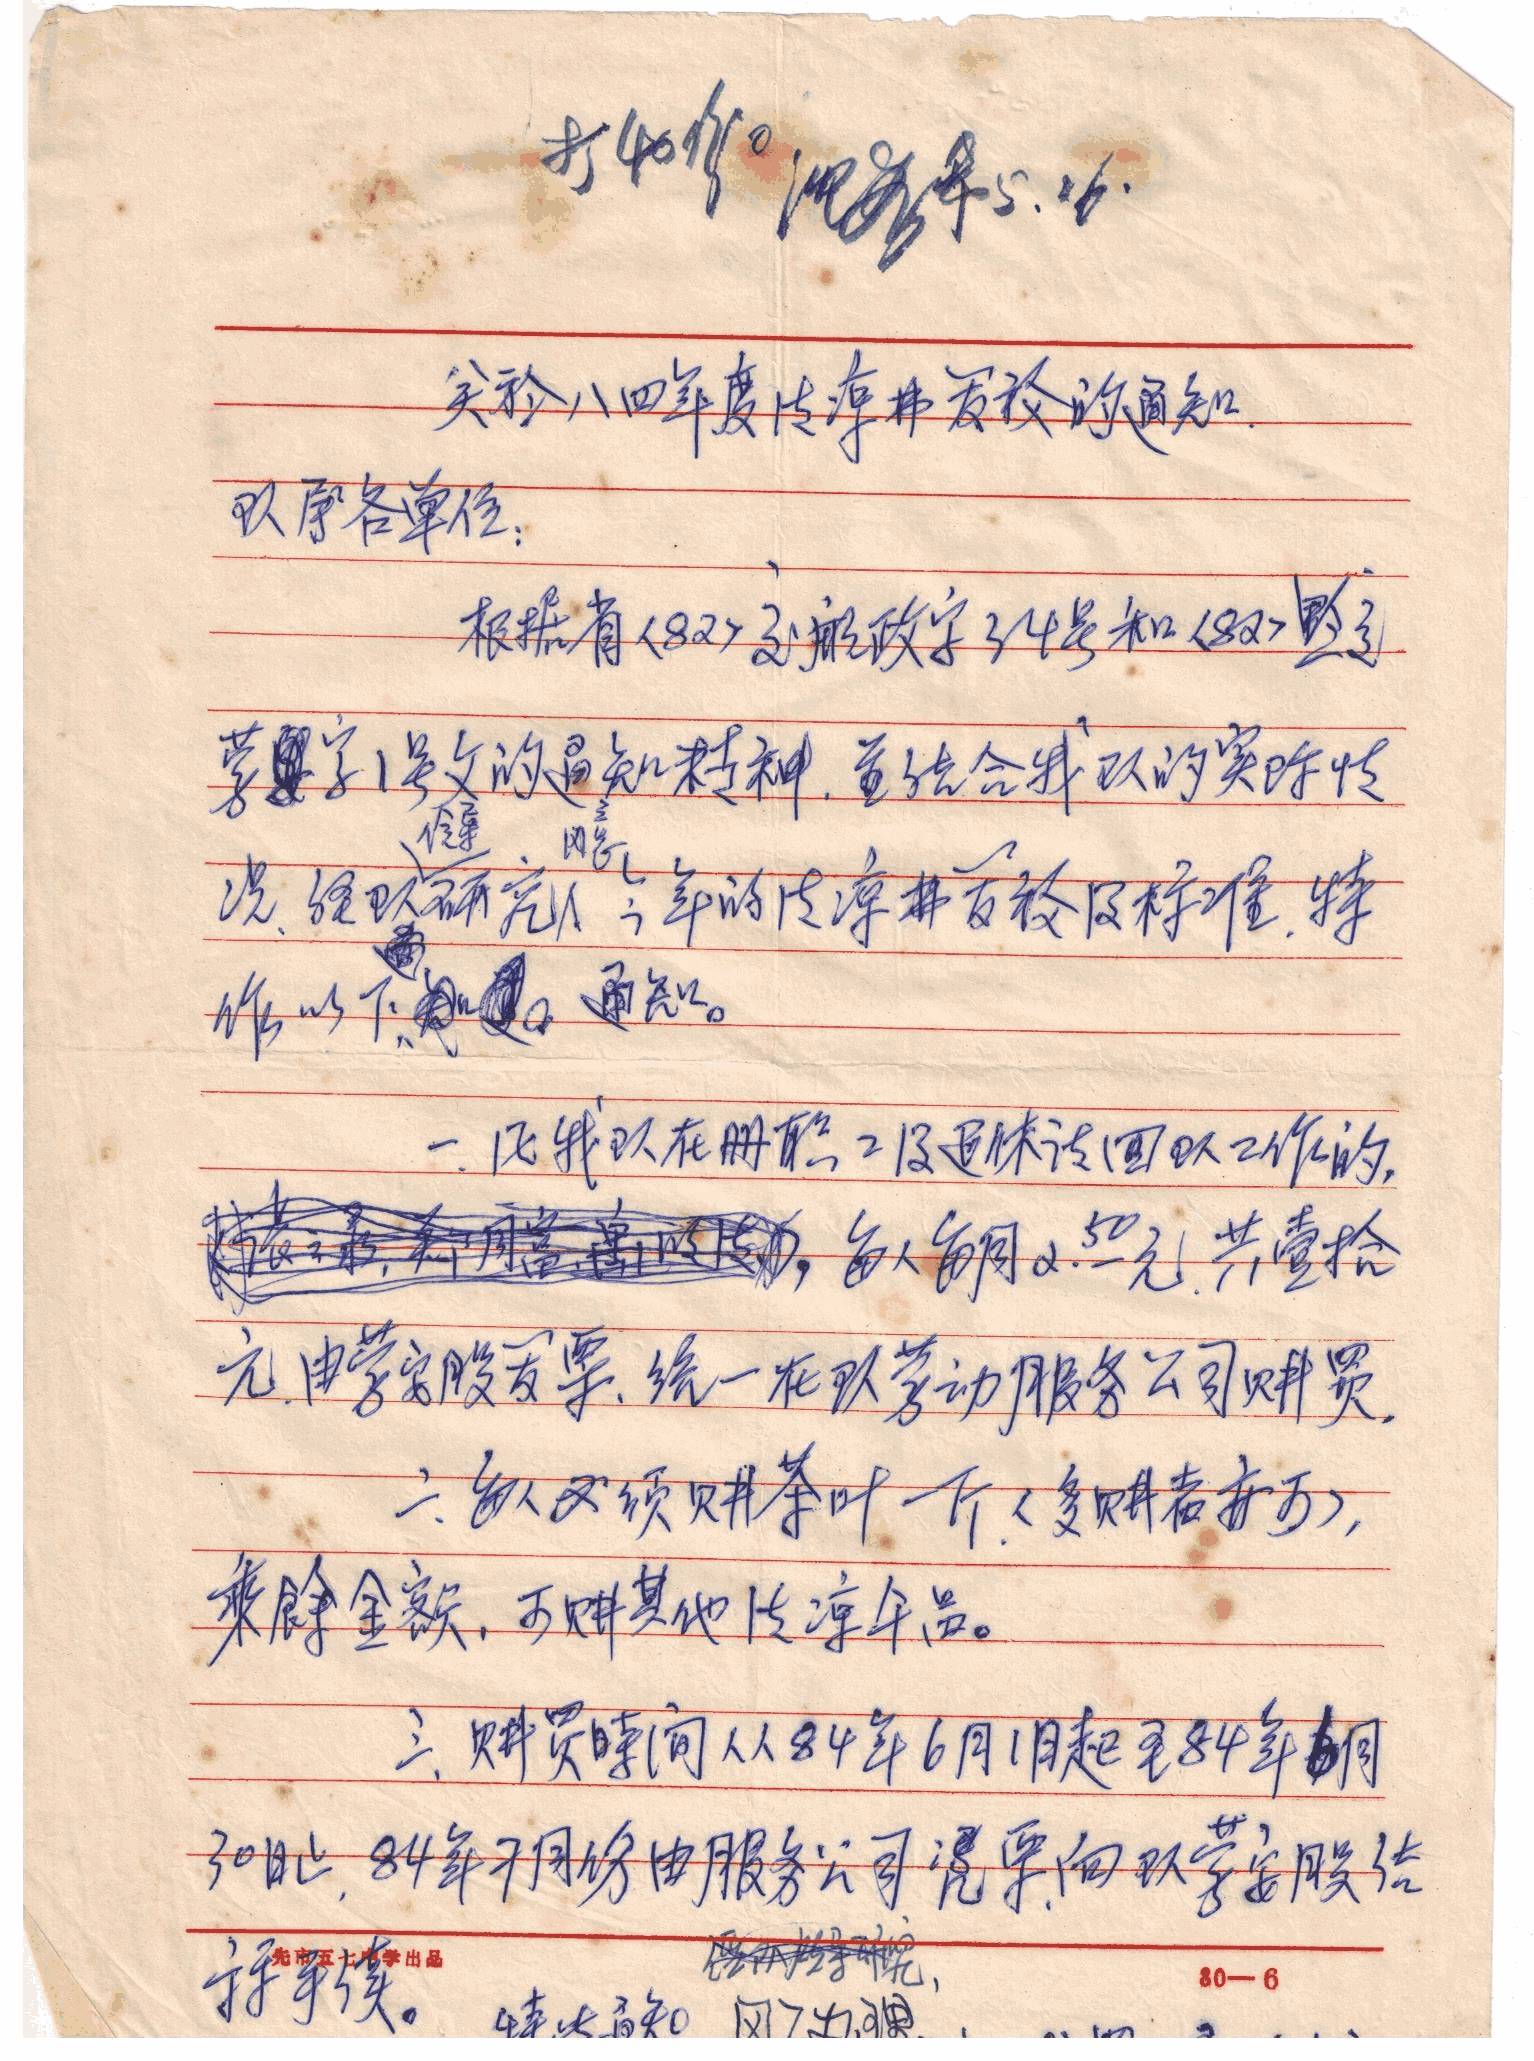 打40份。 5.26.
关於八四年度清凉费发放的通知.
队属各单位:
根据省〈82〉交航政字34号和〈82〉
劳字1号文的通知精神.并结合我队的实际情
况、经队研究、今年的清凉费发放及标准.特
作以下 通知。
一、凡我队在册职工及退休请回队工作的,
每人每月2.50元.共壹拾
元.由劳安股发票、统一在队劳动服务公司购买.
二、每人必须购茶叶一斤.(多购者亦可),
乘馀金额,可购其他清凉伞品。
三、购买时间从84年6月1日起至84年6月
30日止.84年7月份由服务公司凭票向队劳安股结
算手续。
先市五七中学出品 80—6
特此通知。